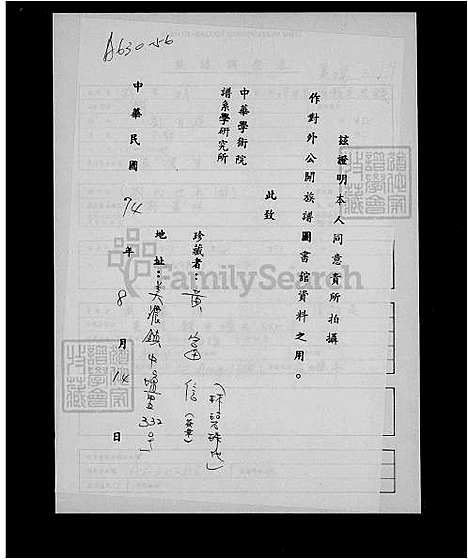 A630-56
茲證明本人同意貴所拍攝
作對外公開族譜圖書館資料之用。
此致
中華學術院
譜系學研究所
珍藏者：黃富信(簽章)
地址：美濃鎮中圳里332号
中華民國 74 年 8 月 14 日
FamilySearch